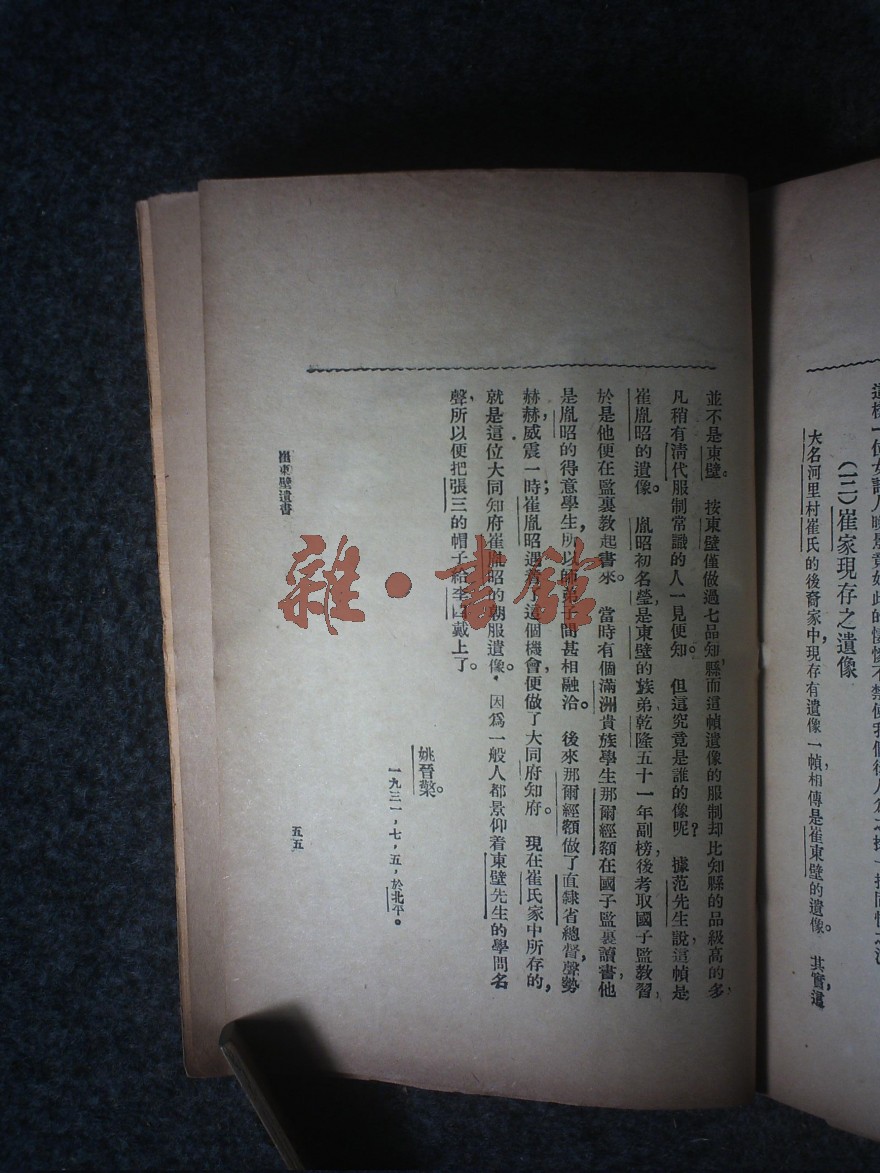 (三)崔家現存之遺像
大名河里村崔氏的後裔家中現存有遺像一幀,相傳是崔東壁的遺像。其實這
並不是東壁。按東壁僅做過七品知縣,而這幀遺像的服制却比知縣的品級高的多,
凡稍有清代服制常識的人一見便知。但這究竟是誰的像呢?據范先生說,這幀是
崔胤昭的遺像。胤昭初名瑩,是東壁的族弟,乾隆五十一年副榜,後考取國子監教習,
於是他便在監裏教起書來。當時有個滿洲貴族學生那爾經額在國子監裏讀書,他
是胤昭的得意學生,所以師弟子間甚相融洽。後來那爾經額做了直隸省總督,聲勢
赫赫,威震一時;崔胤昭遇着了這個機會,便做了大同府知府。現在崔氏家中所存的,
就是這位大同知府崔胤昭的朝服遺像。因爲一般人都景仰着東壁先生的學問名
聲,所以便把張三的帽子給李四戴上了。
姚晉檠。
一九三一,七,五,於北平。
崔東壁遺書
五五
雜·書館